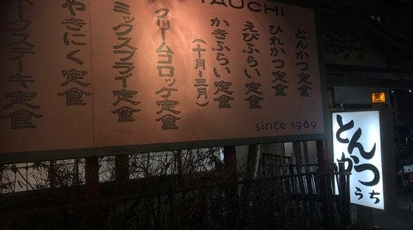 TAUCHI
とんかつ定食
ひれかつ定食
えびふらい定食
かきふらい定食
(十月〜三月)
クリームコロッケ定食
ミックスフライ定食
やきにく定食
ークステーキ定食
since 1969
とんかつ
うち